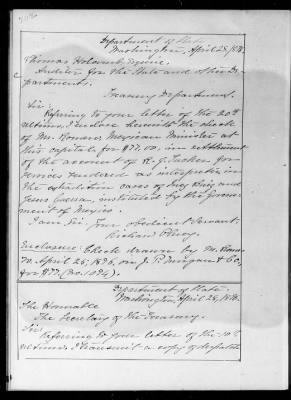 Department of State
Washington, April 28, 1896.
Thomas Holcomb, Esquire,
Auditor for the State and other De-
partments,
Treasury Department.
Sir:
Referring to your letter of the 20th
ultimo, I enclose herewith the check
of Mr. Romero, Mexican Minister at
this capital, for $77.00, in settlement
of the account of R. G. Tucker for
services rendered as interpreter in
the extradition cases of
Jesus instituted by the Govern-
ment of Mexico.
I am, Sir, Your obedient Servant,
Richard Olney.
Enclosure: Check drawn by M. Rome-
ro, April 25, 1896, on J. P. Morgan & Co,
for $77 (No. 1094).
Department of State,
Washington, April 28, 1896.
The Honorable
The Secretary of the Treasury.
Sir:
Referring to your letter of the
ultimo, I transmit a copy of despatch